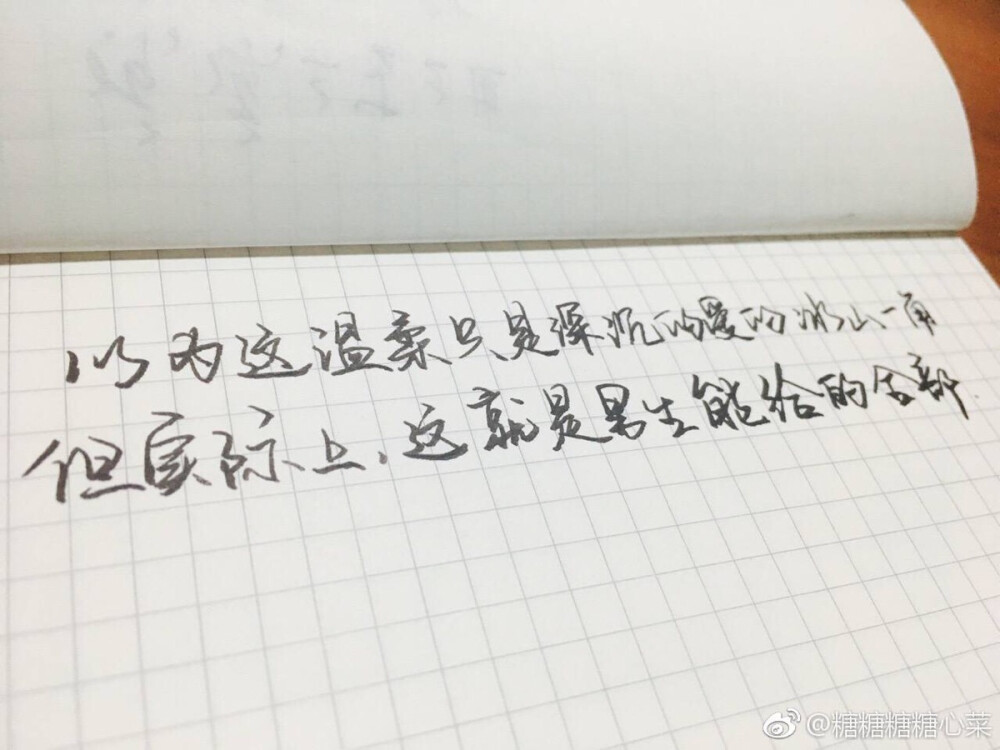 以为这温柔只是深沉的爱的冰山一角
但实际上,这就是男生能给的全部.
@糖糖糖糖心菜